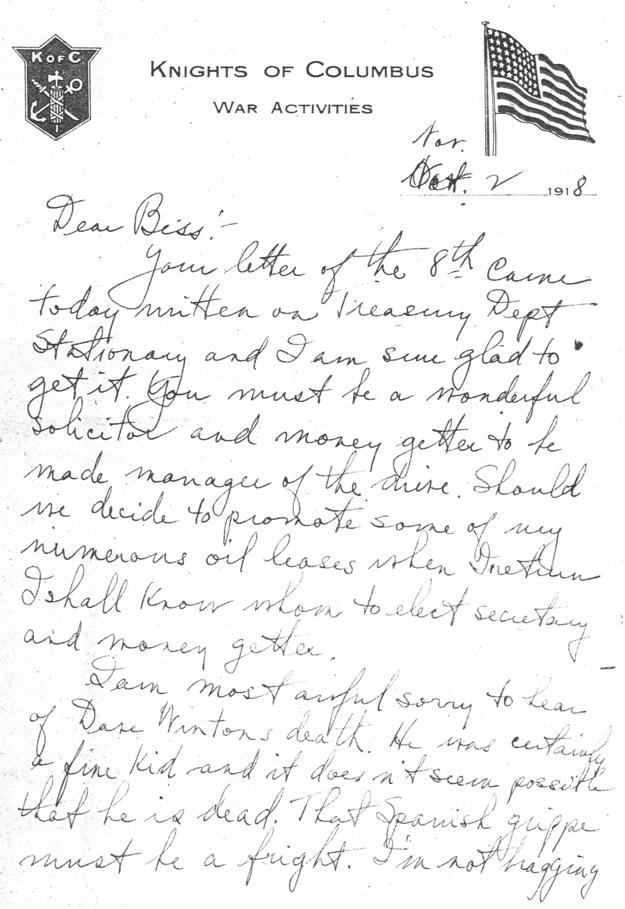 K OF C
KNIGHTS OF COLUMBUS
WAR ACTIVITIES
Nov.
Oct. 2 1918
Dear Biss:-
Your letter of the 8th came
today written on Treasury Dept
Stationary and I am sure glad to
get it. You must be a wonderful
solicitor and money getter to be
made manager of the drive. Should
we decide to promote some of my
numerous oil leases when I return
I shall know whom to elect secretary
and money getter.
I am most awful sorry to hear
of Dave Wintons death. He was certainly
a fine kid and it does n't seem possible
that he is dead. That Spanish grippe
must be a fright. I'm not bragging